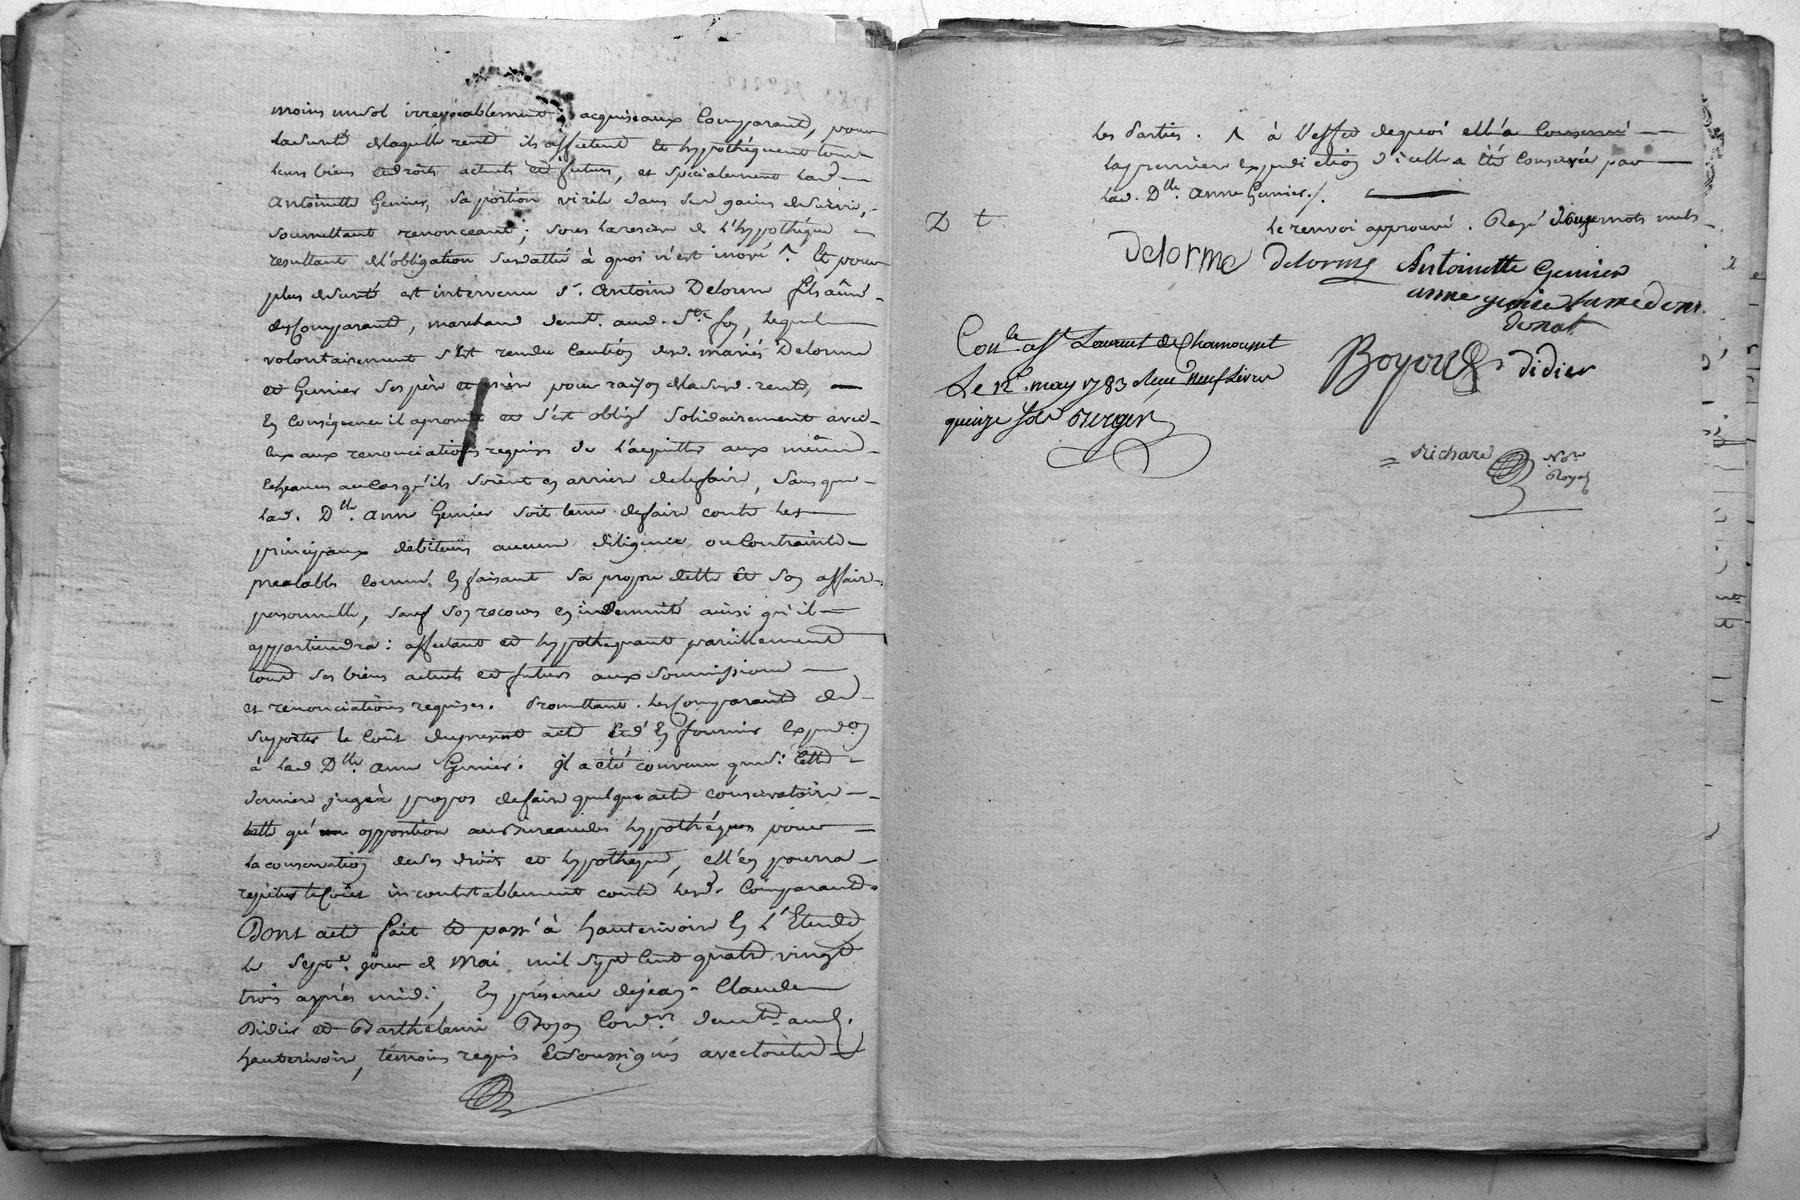 moins un sol irrevocablement acquise aux Comparants, pour
la sureté de laquelle rente ils affectent et hypothéquent tous
leurs biens et droits actuels et futurs, et spécialement lad.
Antoinette Genier, sa portion virile dans ses gains de survie,
soumettant renonceant; sous la reserve de l'hypothéque
resultant de l'obligation susdattée à quoi n'est inové ^. Et pour
plus de sureté est intervenu sr. Antoine Delorme fils ainé
des Comparants, marchand demt. aud. Ste foy, lequel
volontairement s'est rendu Caution desd. mariés Delorme
et Genier ses père et mère pour raison de lasusd. rente,
En conséquence il a promis et s'est obligé solidairement avec
eux aux renonciations requises de l'acquitter aux mêmes
Echeances au cas qu'ils soient en arriere de le faire, sans que
lad. Dlle. anne Genier soit tenue de faire contre les
principaux debiteurs aucune diligence ou Contrainte
prealable comme en faisant sa propre dette et son affaire
personnelle, sauf son recours en indemnité ainsi qu'il
appartiendra: affectant et hypothequant pareillement
tous ses biens actuels et futurs aux soumissions
et renonciations requises. Promettant les Comparants de
supporter le Coût du present acte et d'En fournir Expedon
à lad Dlle. anne Genier: il a été convenu que si cette
derniere juge à propos de faire quelque acte conservatoire
telle qu'une opposition au Bureau des hypothéques pour
la conservation de ses droits et hypotheque, elle en pourra
repeter le Coût incontestablement contre lesd. Comparants
Dont acte fait et passé à hauterivoire En l'Etude
le septe. jour de Mai mil sept cent quatre vingt
trois après midi, En présence de jean Claude
Didier et Barthelemi Boyon Cordrs. demts aud.
hauterivoire, témoins requis Et soussignés avec toutes
les Parties. ^ à l'effet de quoi elle a Conservé
la premiere expedition d'icelle a été Conservée par
lad. Dlle. Anne Genier./.
D t
le renvoi approuvé. Rayé douze mots nuls
Delorme Delorme Antoinette Genier
anne genier
donat
Conle. aste Laurent de Chamousset
Le 12. may 1783 Reçu neuf Livres
quinze sols Berger
Boyon Didier
= Richard Nore
Royal